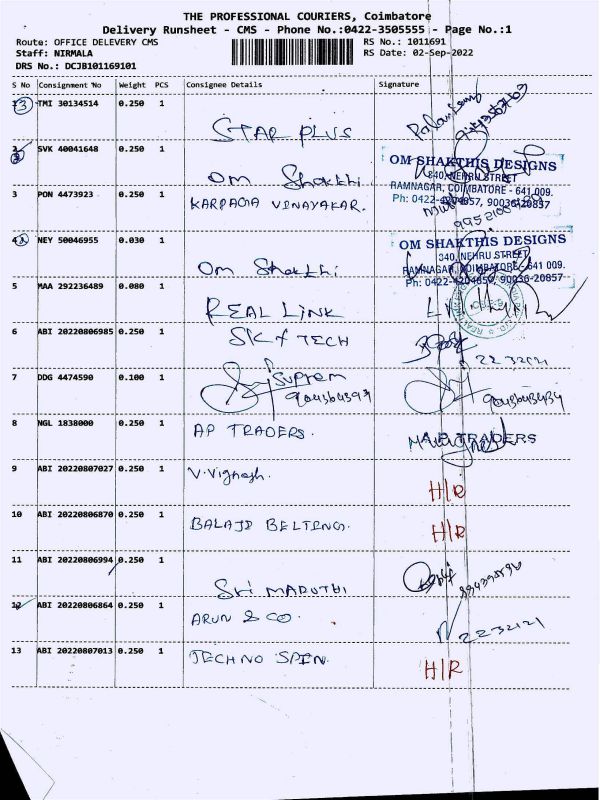 THE PROFESSIONAL COURIERS, Coimbatore
Delivery Runsheet - CMS - Phone No.:0422-3505555 - Page No.:1
Route: OFFICE DELEVERY CMS
RS No.: 1011691
Staff: NIRMALA
RS Date: 02-Sep-2022
DRS No.: DCJB101169101
S No Consignment No Weight PCS Consignee Details Signature
3 TMI 30134514 0.250 1
STAR PLUS
SVK 40041648 0.250 1
OM Shakthi
OM SHAKTHIS DESIGNS
340, NEHRU STREET
RAMNAGAR, COIMBATORE - 641 009.
Ph: 0422-4204857, 90036-20857
3 PON 4473923 0.250 1
KARPAGA VINAYAKAR.
4 NEY 50046955 0.030 1
OM Shakthi
OM SHAKTHIS DESIGNS
340, NEHRU STREET,
RAMNAGAR, COIMBATORE - 641 009.
Ph: 0422-4204857, 90036-20857
5 MAA 292236489 0.080 1
REAL LINK
6 ABI 20220806985 0.250 1
SKY TECH
2232121
7 DDG 4474590 0.100 1
Suprem
8 NGL 1838000 0.250 1
AP TRADERS.
A.P. TRADERS
9 ABI 20220807027 0.250 1
V. Vignesh.
H/R
10 ABI 20220806870 0.250 1
BALAJI BELTING.
H/R
11 ABI 20220806994 0.250 1
SRI MARUTHI
12 ABI 20220806864 0.250 1
ARUN & CO.
2232121
13 ABI 20220807013 0.250 1
TECHNO SPIN.
H/R